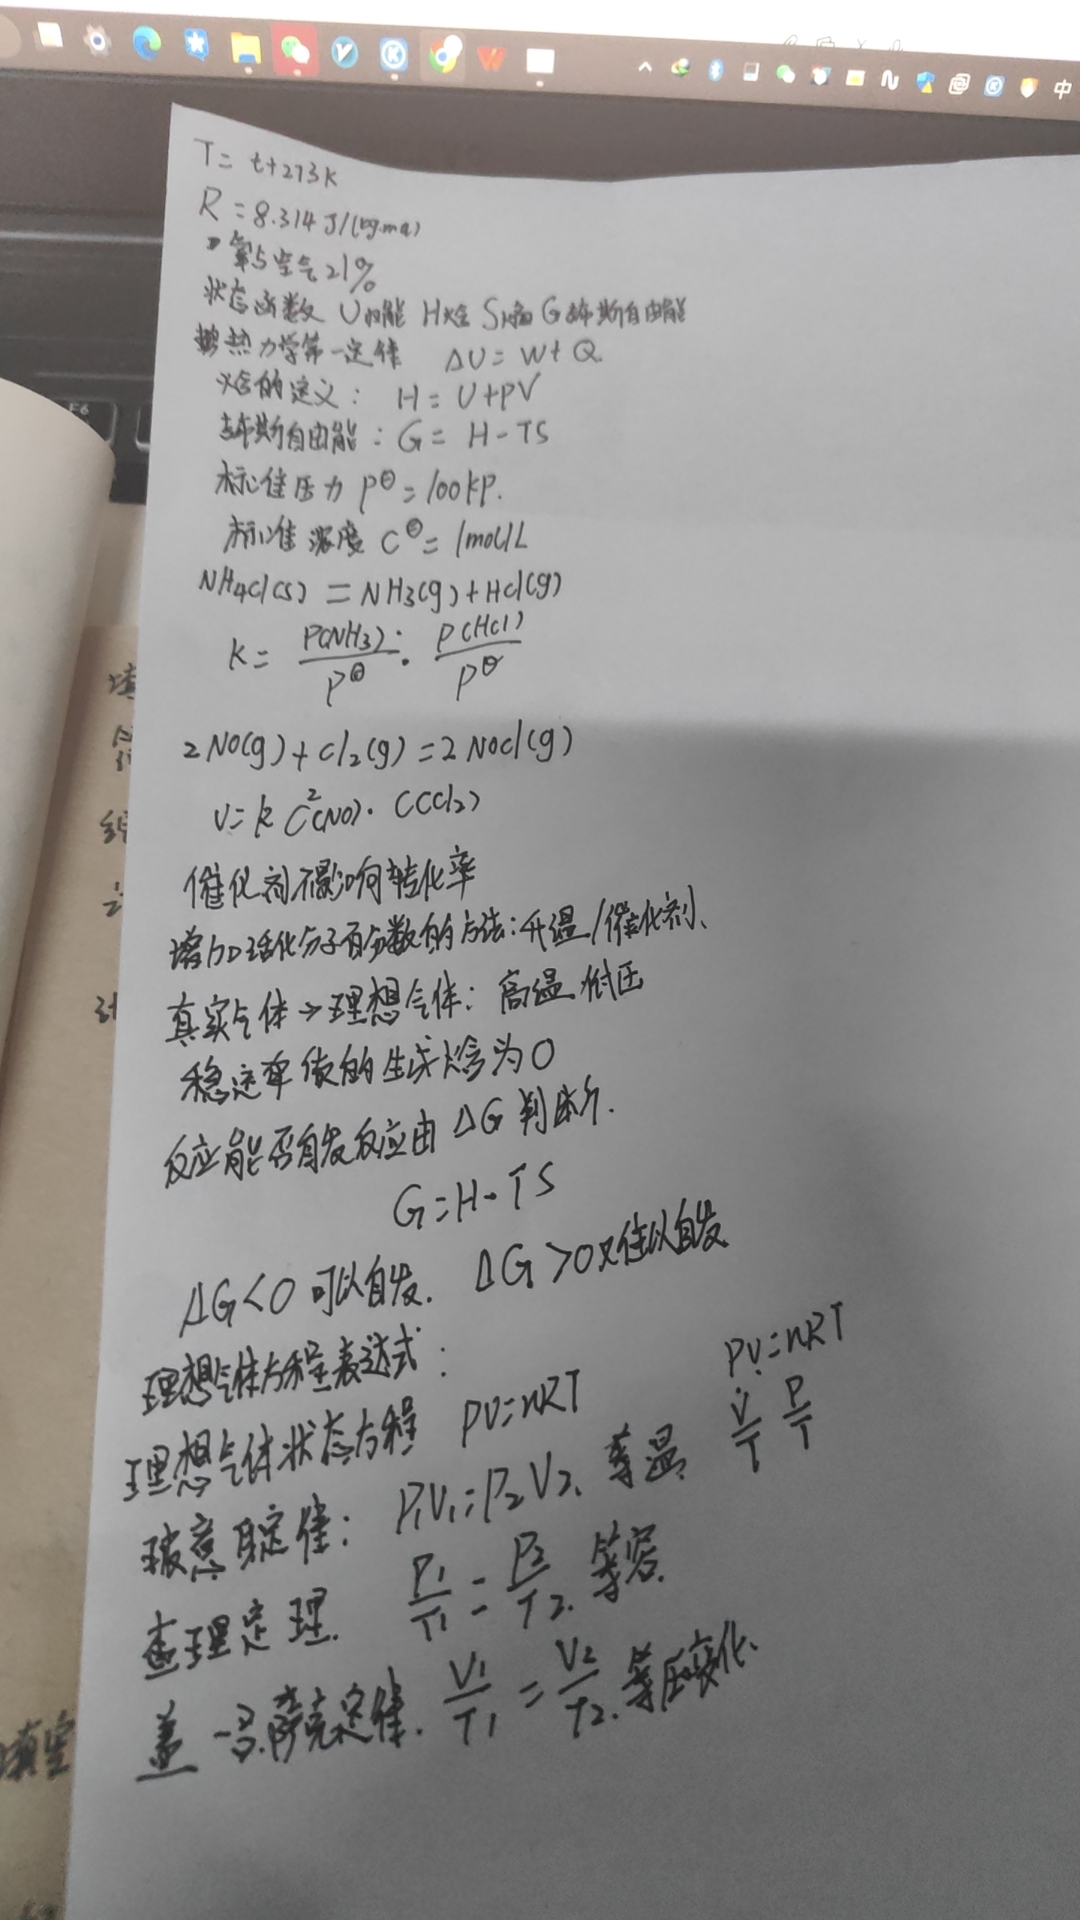 T= t+273K
R=8.314 J/(
氧占空气21%
状态函数 U内能 H焓 S熵 G吉布斯自由能
热力学第一定律 ΔU=W+Q.
焓的定义: H=U+PV
吉布斯自由能: G=H-TS
标准压力 P^θ=100kP.
标准浓度 C^θ=1mol/L
NH4Cl(s)=NH3(g)+HCl(g)
K= P(NH3)/P^θ · P(HCl)/P^θ
2NO(g)+Cl2(g)=2NOCl(g)
V=k C²(NO)·C(Cl2)
催化剂不影响转化率
增加活化分子百分数的方法:升温/催化剂、
真实气体→理想气体: 高温、低压
稳定单质的生成焓为0
反应能否自发反应由ΔG判断.
G=H-TS
ΔG<0 可以自发. ΔG>0 难以自发
理想气体方程表达式:
PV=nRT
理想气体状态方程 PV=nRT
V/T P/T
玻意耳定律: P1V1=P2V2、等温
查理定理. P1/T1=P2/T2. 等容.
盖-吕萨克定律. V1/T1=V2/T2. 等压变化.
填空
F6
中